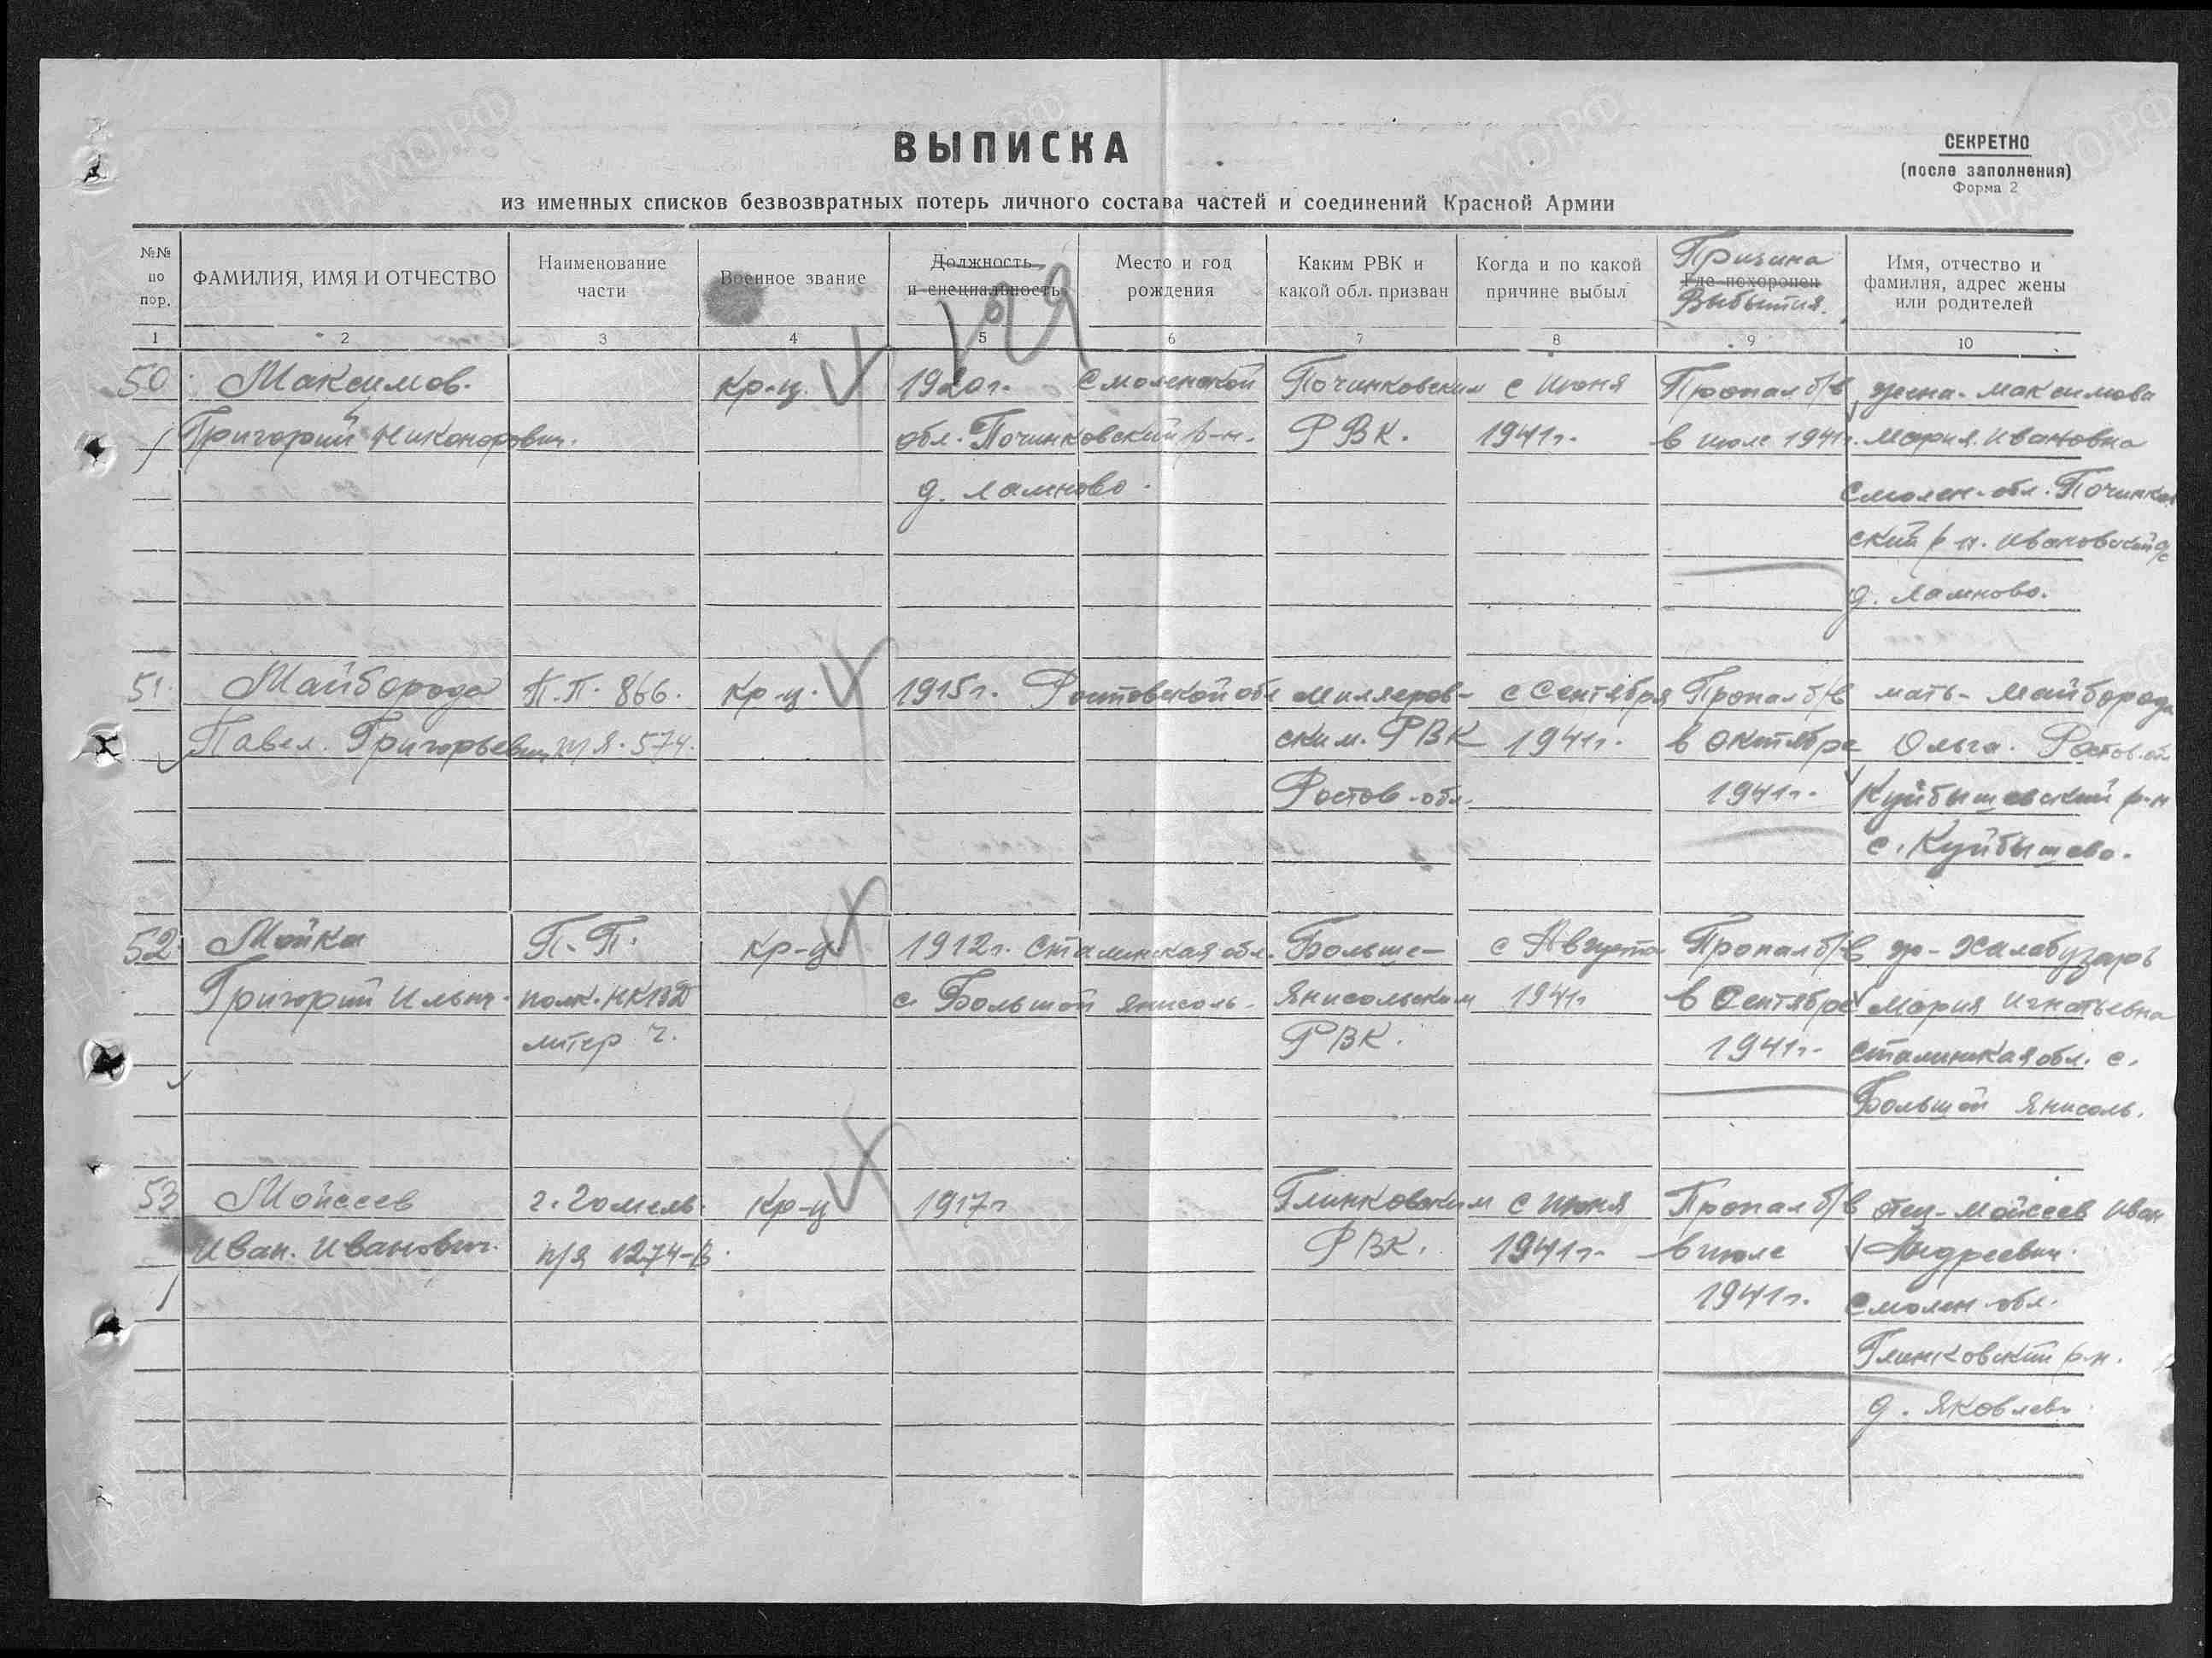 ВЫПИСКА
СЕКРЕТНО
(после заполнения)
Форма 2
из именных списков безвозвратных потерь личного состава частей и соединений Красной Армии
№№ по пор.
ФАМИЛИЯ, ИМЯ И ОТЧЕСТВО
Наименование части
Военное звание
Должность и специальность
Место и год рождения
Каким РВК и какой обл. призван
Когда и по какой причине выбыл
Причина
Где похоронен
Выбытия.
Имя, отчество и фамилия, адрес жены или родителей
1 2 3 4 5 6 7 8 9 10
50 Максимов. кр-ц. 1920г. Смоленской Починковским с Июня Пропал б/в жена-Максимова
Григорий Никонорович. обл. Починковский р-н. РВК. 1941г. в июле 1941г. Мария. Ивановна
д. Ламново. Смолен-обл. Починков
ский р-н. Ивановский с/с
д. Ламново.
51. Майборода П.П. 866. кр-ц. 1915г. Ростовской обл Миллеров- с Сентября Пропал б/в мать-Майборода
Павел. Григорьевич п/я. 574. ским. РВК 1941г. в Октябре Ольга. Ростов. обл
Ростов-обл. 1941г. Куйбышевский р-н
с. Куйбышево.
52 Мойка П.П. кр-ц 1912г. Сталинская обл. Больше- с Августа Пропал б/в ж-
Григорий Ильич. полк. НКВД с. Большой Янисоль. Янисольским 1941г в Сентябре Мария Игнатьевна
литер Ч. РВК. 1941г. Сталинская обл. с.
Большой Янисоль.
53 Мойсеев г. Гомель. Кр-ц 1917г Глинковским с Июня Пропал б/в отец-Мойсеев Иван
Иван. Иванович. п/я 1274-В. РВК. 1941г. в июле Андреевич.
1941г. Смолен-обл.
Глинковский р-н.
д. Яковлево